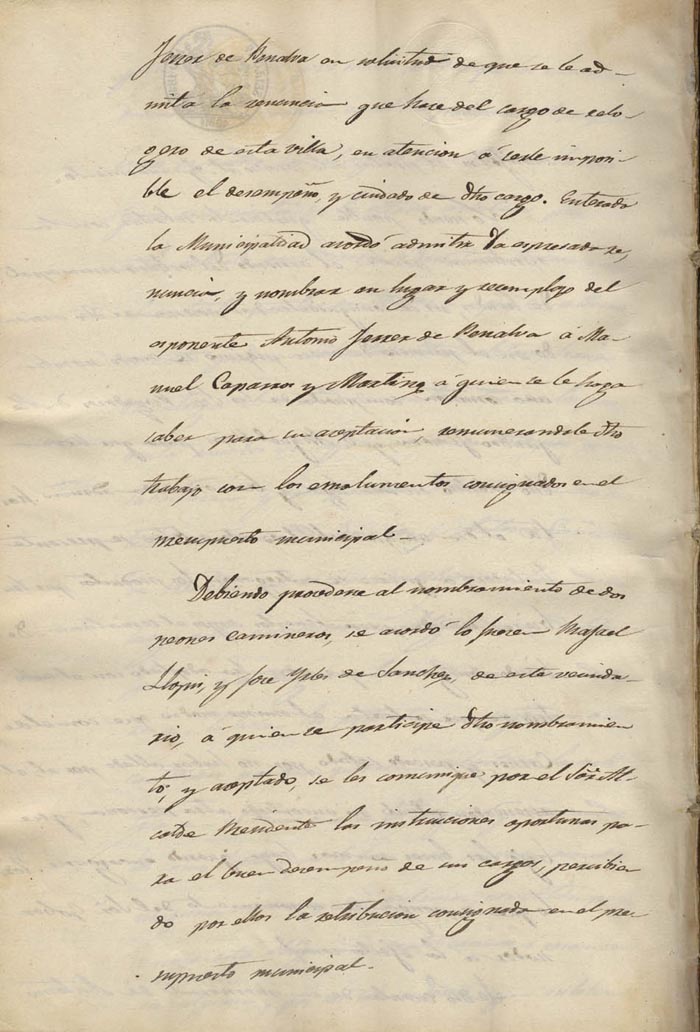 Ferrer de Penalva en solicitud de que se le ad-
mita la renuncia que hace del cargo de relo-
gero de esta villa, en atencion á serle imposi-
ble el desempeño, y cuidado de dho cargo. Enterada
la Municipalidad acordó admitir la espresada re,
nuncia, y nombrar en lugar y reemplazo del
esponente Antonio Ferrer de Penalva á Ma-
nuel Caparros y Martinez á quien se le haga
saber para su aceptacion, remunerandole dho
trabajo con los emolumentos consignados en el
presupuesto municipal-
Debiendo procederse al nombramiento de dos
peones camineros, se acordó lo fuesen Rafael
Llopis, y Jose Ybes de Sanchez, de este vecinda-
rio, á quien se participe dho nombramien
to; y aceptado, se les comunique por el Sôr Al-
calde Presidente las instrucciones oportunas pa-
ra el buen desempeño de sus cargos, percibien
do por ellos la retribucion consignada en el pre
supuesto municipal.-